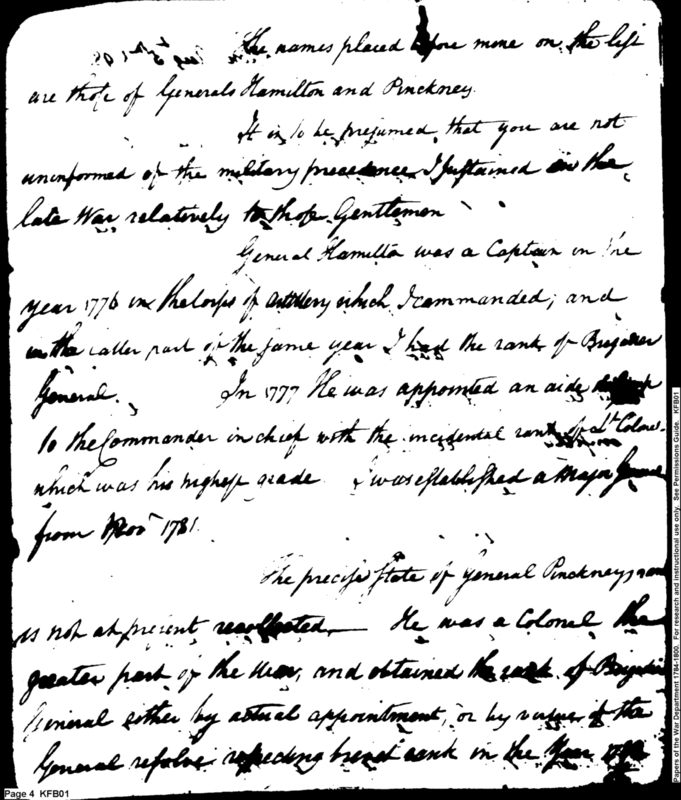 The names placed before mine on the list
are those of Generals Hamilton and Pinckney.
It is to be presumed, that you are not
uninformed of the military precedence I sustained in the
late War relatively to those Gentlemen
General Hamilton was a Captain in the
year 1776 in the Corps of Artillery which I commanded; and
in the latter part of the same year I had the rank of Brigadier
General. In 1777 He was appointed an aide
to the Commander in chief with the incidental rank of Lt. Colonel
which was his highest grade I was established a Major General
from Novr 1781.
The precise state of General Pinckneys rank
is not at present recollected. He was a Colonel the
greater part of the War, and obtained the rank of Brigadier
General either by actual appointment, or by virtue of the
General resolve respecting brevet rank in the Year
Page 4 KFB01
Papers of the War Department 1784-1800. For research and instructional use only. See Permissions Guide. KFB01